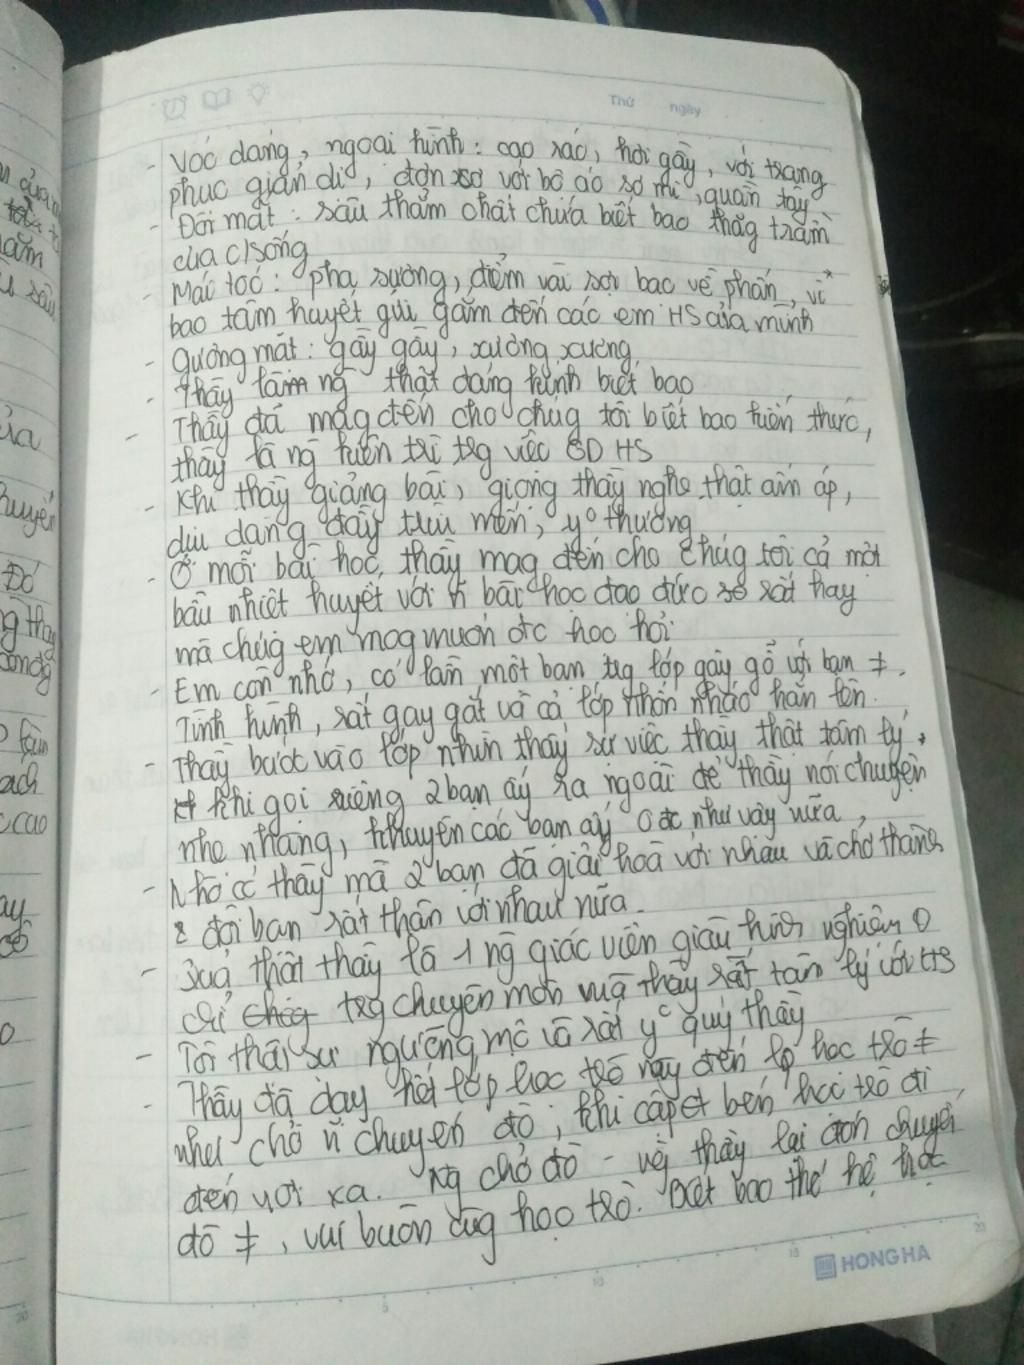 Thứ ngày
- Vóc dáng, ngoại hình: cao ráo, hơi gầy, với trang
phục giản dị, đơn sơ với bộ áo sơ mi, quần tây
- Đôi mắt: sâu thẳm chất chứa biết bao thăg trầm
của c/sống
- Mái tóc: pha sương, điểm vài sợi bạc về phấn, vì*
bao tâm huyết gửi gắm đến các em HS của mình
- Gương mặt: gầy gầy, xương xương
- Thầy làm ng thật đáng kính biết bao
- Thầy đã mag đến cho chúg tôi biết bao kiến thức,
thầy là ng kiên trì trg việc GD HS
- Khi thầy giảng bài, giọng thầy nghe thật ấm áp,
dịu dàng đầy trìu mến, yº thương
- Ở mỗi bài học, thầy mag đến cho chúg tôi cả một
bầu nhiệt huyết với ñ bài học đạo đức sẽ rất hay
mà chúg em mog muốn đc học hỏi
- Em còn nhớ, có lần một bạn trg lớp gây gổ với bạn ≠.
Tình hình, rất gay gắt và cả lớp nhốn nháo hẳn lên.
- Thầy bước vào lớp nhìn thấy sự việc thầy thật tâm lý,
khi gọi riêng 2 bạn ấy ra ngoài để thầy nói chuyện
nhẹ nhàng, khuyên các bạn ấy 0 đc như vậy nữa,
- Nhờ có thầy mà 2 bạn đã giải hoà với nhau và chở thành
đôi bạn rất thân với nhau nữa.
- Quả thật thầy là 1 ng giác viên giàu kinh nghiệm 0
chỉ trg chuyên môn mà thầy rất tâm lý với HS
- Tôi thật sự ngưỡng mộ và rất yº quý thầy
- Thầy đã dạy hết lớp học trò này đến lớp học trò ≠
như chở ñ chuyến đò, khi cập bến học trò đi
đến nơi xa. Ng chở đò - thầy lại đón chuyến
đò ≠, vui buồn cùg học trò. Biết bao thế hệ học
5 10 15 20
HONG HA